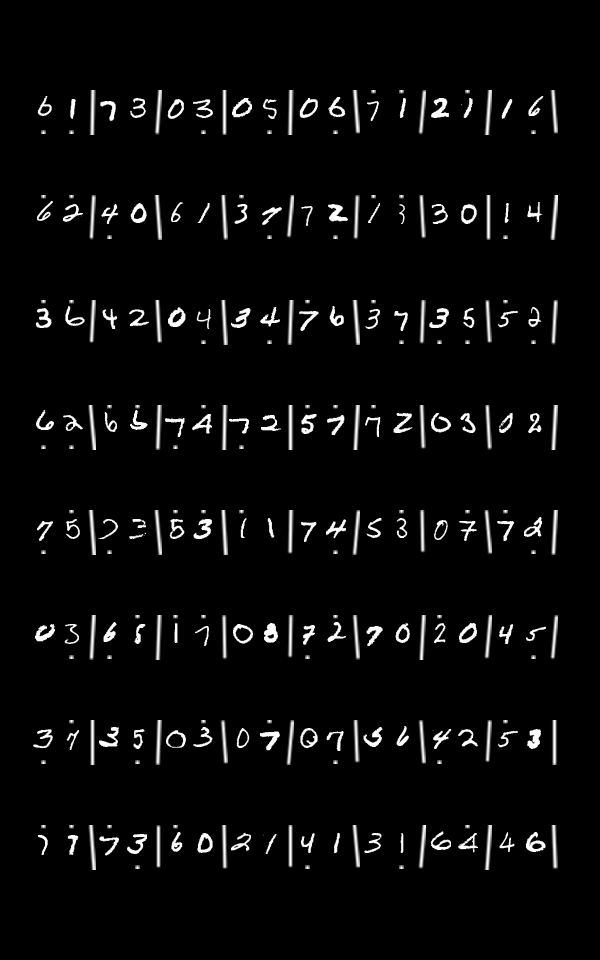 6 1 | 7 3 | 0 3 | 0 5 | 0 6 | 7 1 | 2 1 | 1 6 |
6 2 | 4 0 | 6 1 | 3 7 | 7 2 | 1 3 | 3 0 | 1 4 |
3 6 | 4 2 | 0 4 | 3 4 | 7 6 | 3 7 | 3 5 | 5 2 |
6 2 | 6 6 | 7 4 | 7 2 | 5 7 | 7 2 | 0 3 | 0 2 |
7 5 | 2 3 | 5 3 | 1 1 | 7 4 | 5 3 | 0 7 | 7 2 |
0 3 | 6 5 | 1 7 | 0 3 | 7 2 | 7 0 | 2 0 | 4 5 |
3 7 | 3 5 | 0 3 | 0 7 | 0 7 | 5 6 | 4 2 | 5 3 |
7 7 | 7 3 | 6 0 | 2 1 | 4 1 | 3 1 | 6 4 | 4 6 |